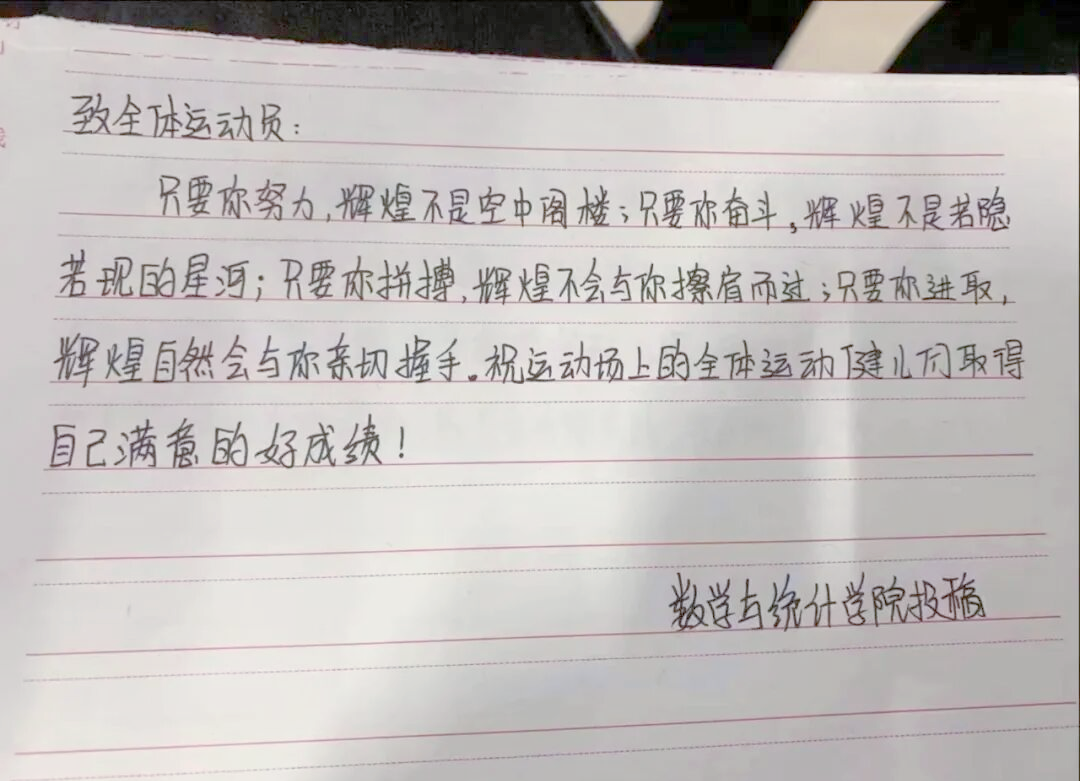 致全体运动员：
只要你努力，辉煌不是空中阁楼；只要你奋斗，辉煌不是若隐
若现的星河；只要你拼搏，辉煌不会与你擦肩而过；只要你进取，
辉煌自然会与你亲切握手。祝运动场上的全体运动健儿们取得
自己满意的好成绩！
数学与统计学院投稿